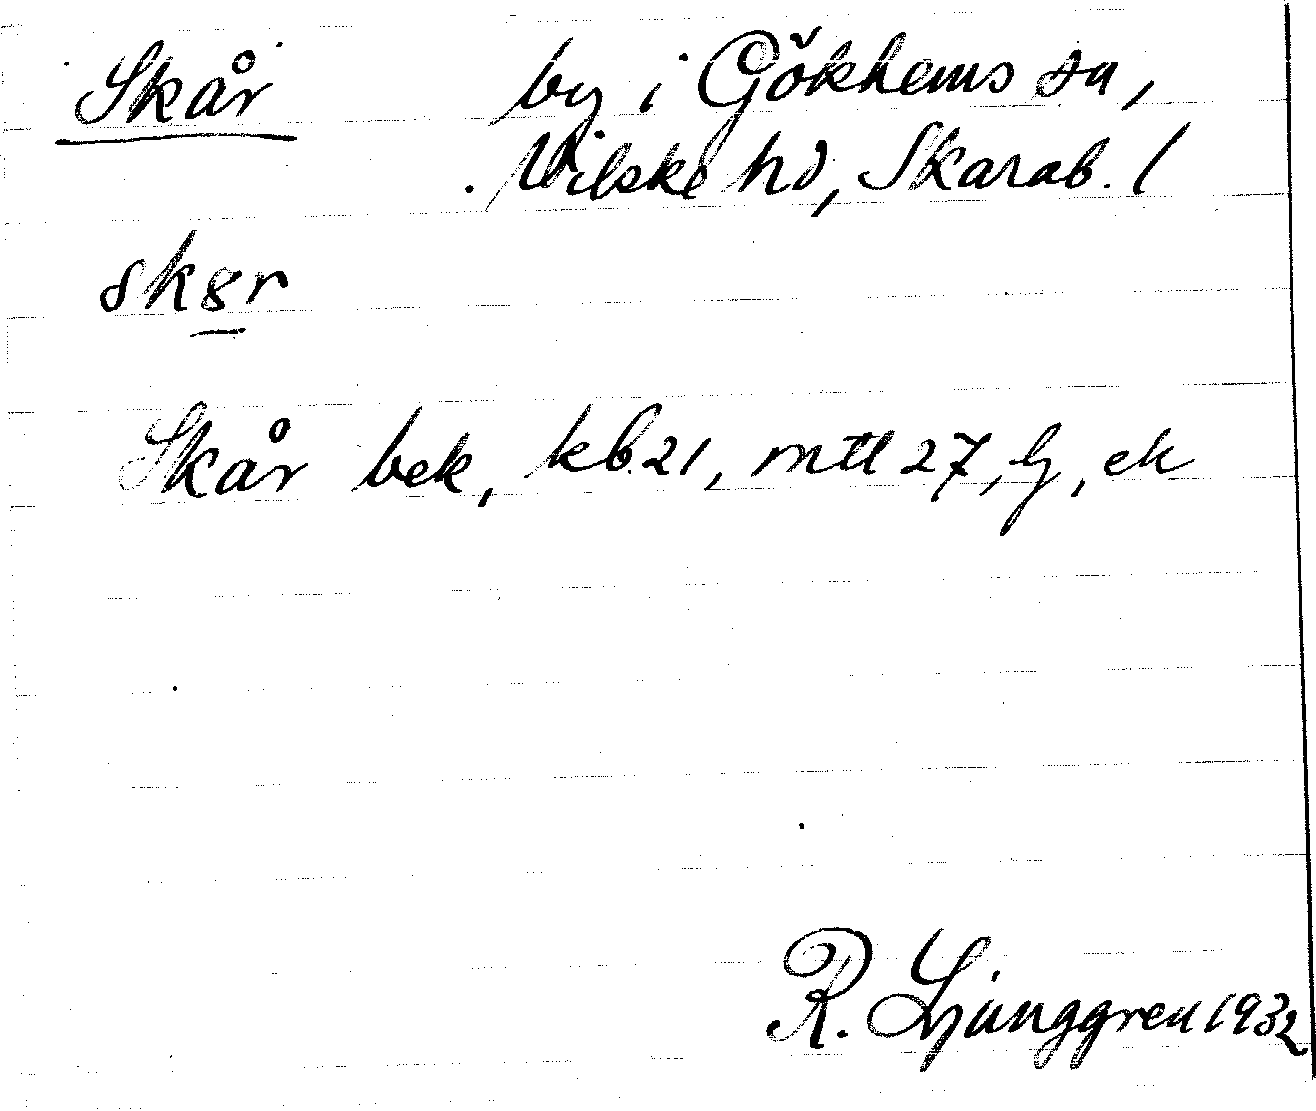 Skår by i Gökhems sn,
Vilske hd, Skarab. l
sk8r
Skår bek, kb 21, mtl 27, lj, ek
R. Ljunggren 1932